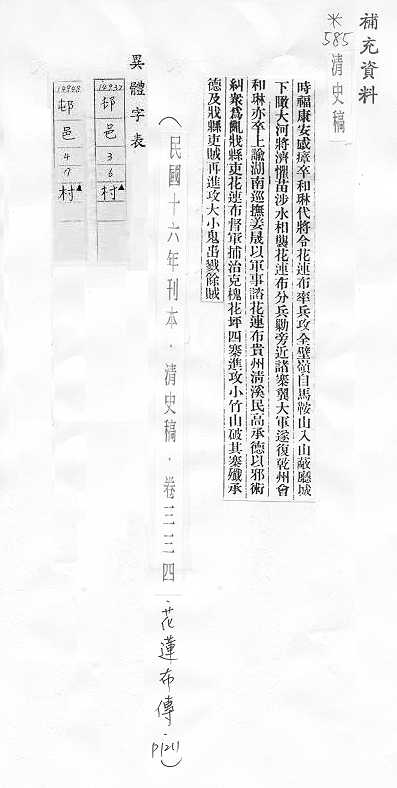 補充資料
*585清史稿
時福康安感瘴卒和琳代將令花連布率兵攻全壁嶺自馬鞍山入山敵廳城
下瞰大河將濟懼苗涉水相襲花連布分兵勦旁近諸寨翼大軍遂復乾州會
和琳亦卒上諭湖南巡撫姜晟以軍事諮花連布貴州清溪民高承德以邪術
糾衆爲亂戕縣吏花連布督軍捕治克槐花坪四寨進攻小竹山破其寨殲承
德及戕縣吏賊再進攻大小鬼嵒戮餘賊
(民國十六年刊本·清史稿·卷三三四·花蓮布傳·P1211)
異體字表
14937
邨
邑
3
6
村▲
14948
邑
4
7
村▲